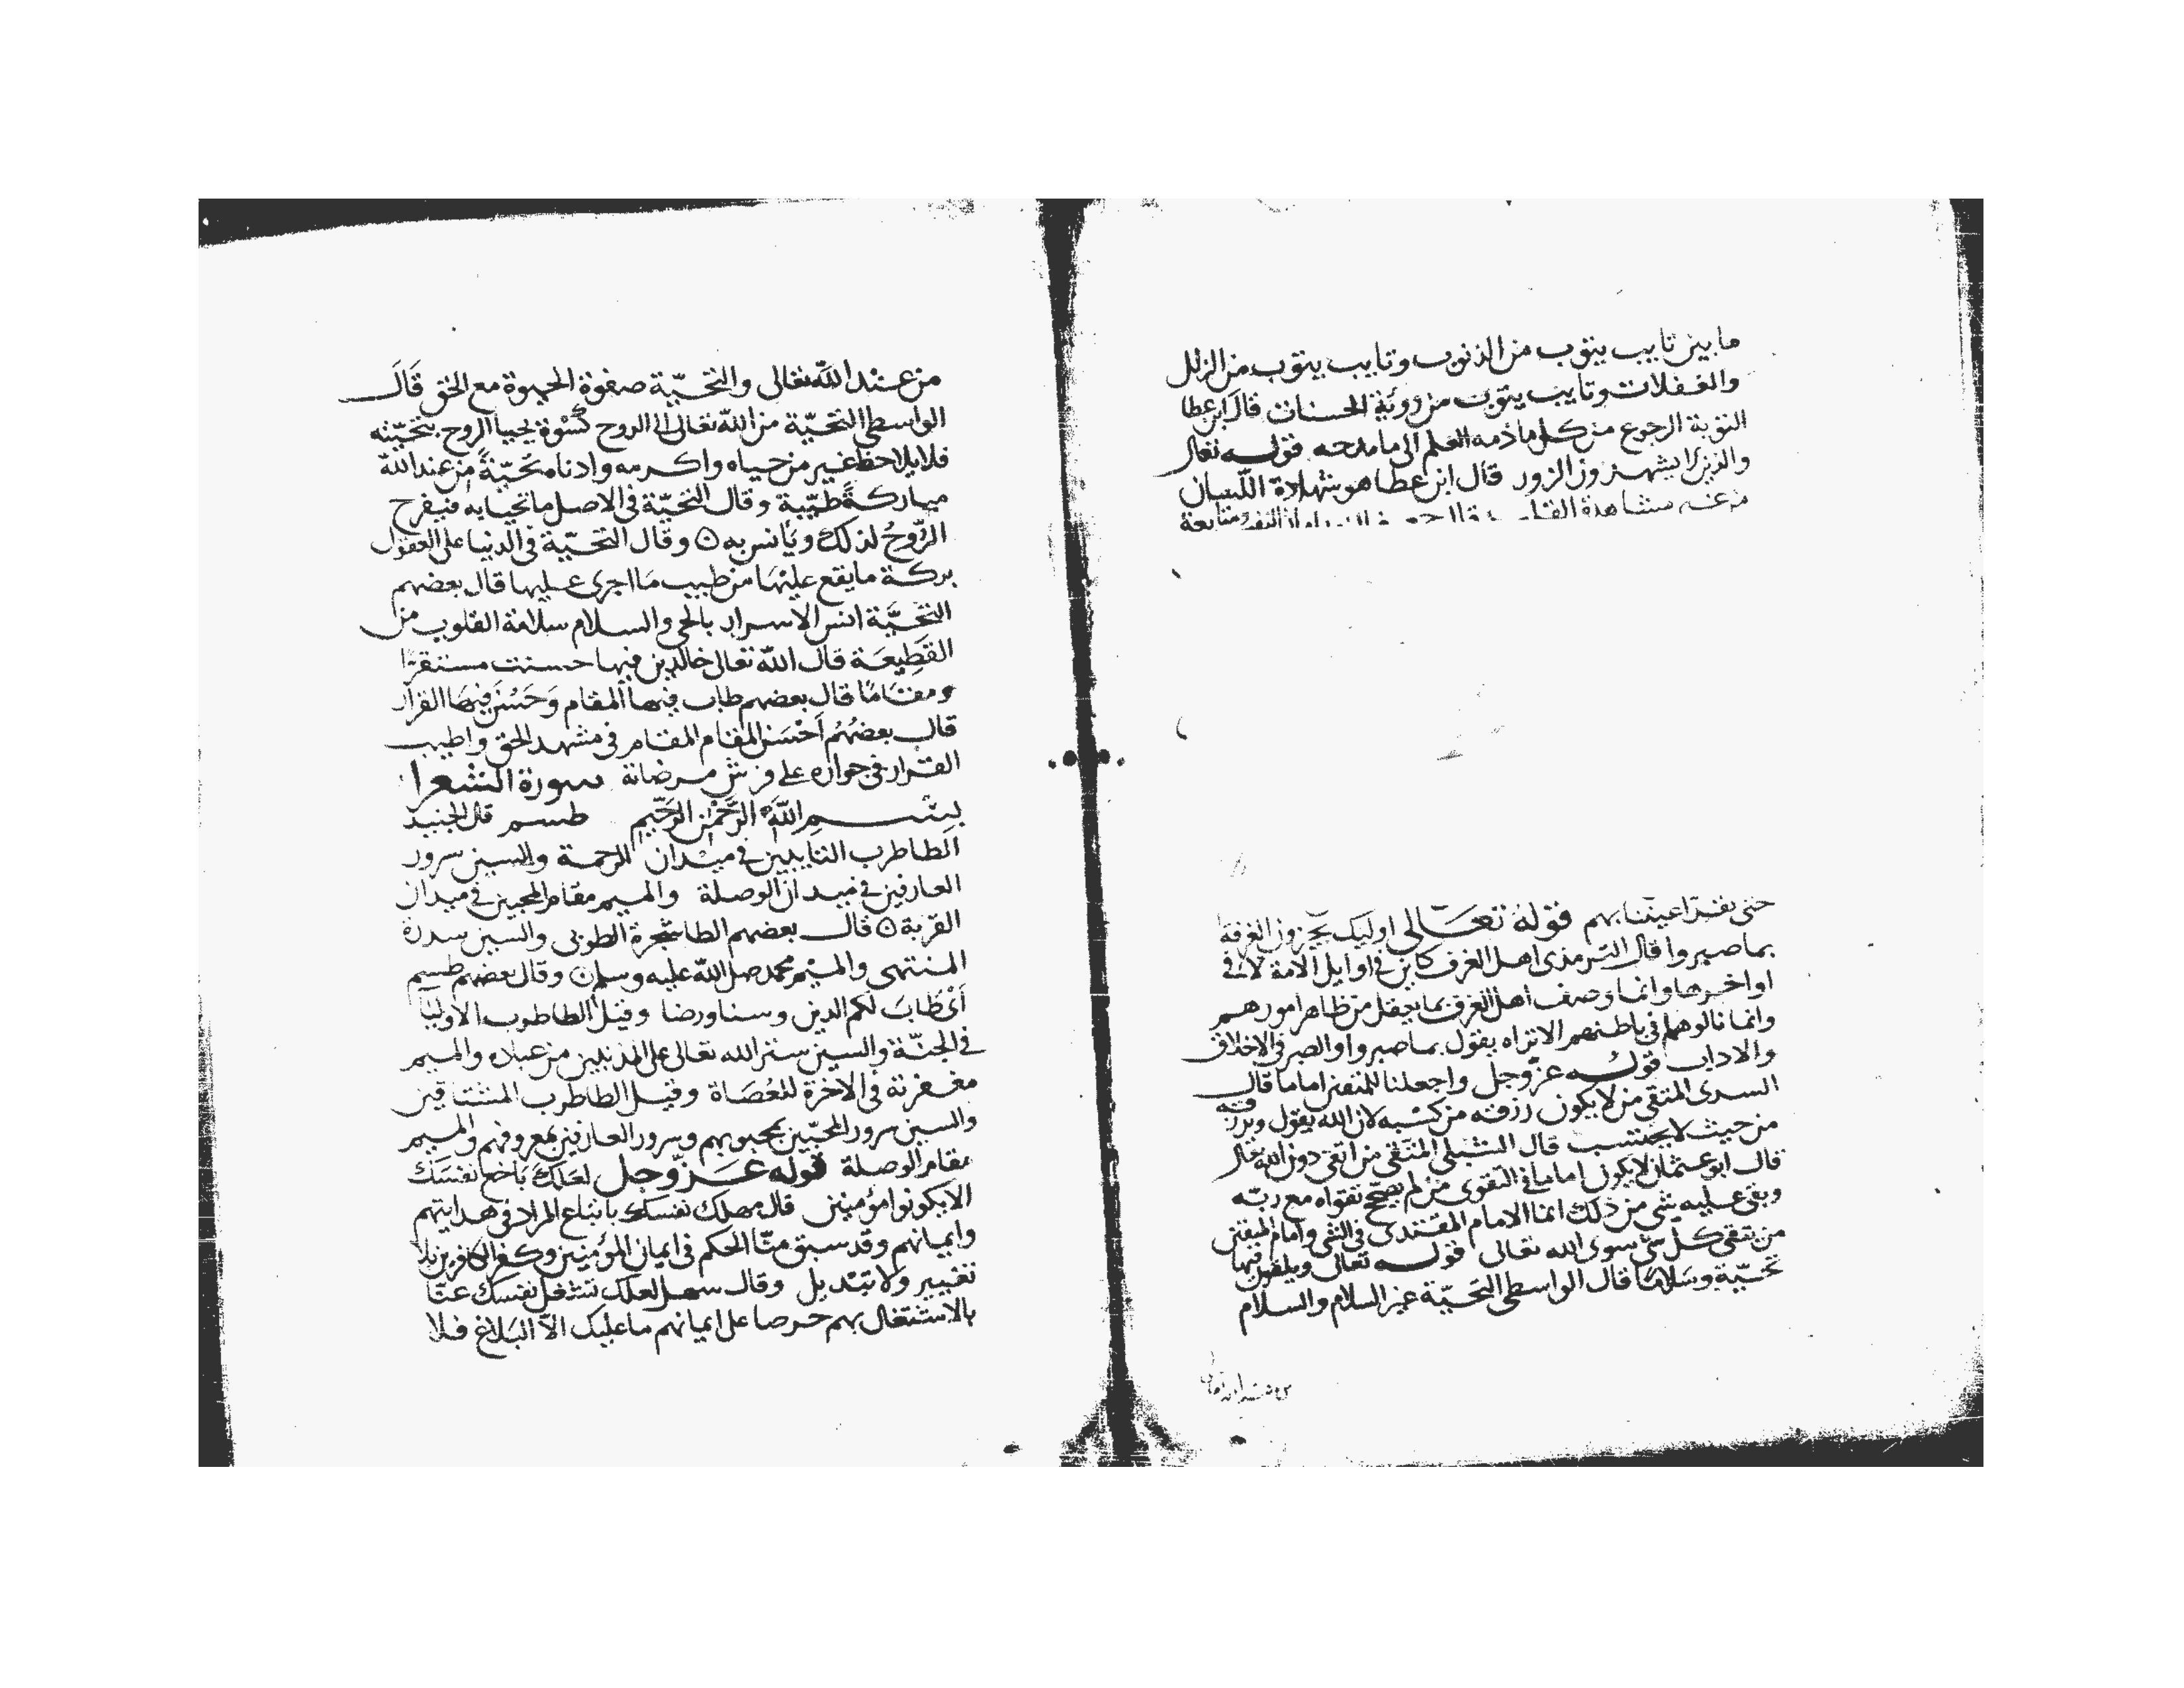 ما بين تايب يتوب من الذنوب وتايب يتوب من الزلل
والغفلات وتايب يتوب من روية الحسنات قال ابن عطا
التوبة الرجوع من كل ما ذمه العلم الى ما مدحه قوله تعالى
والذين لا يشهدون الزور قال ابن عطا هو شهادة اللسان
من غير مشاهدة القلب
حتى تقر اعيننا بهم قوله تعالى اوليك يجزون الغرفة
بما صبروا قال الترمذى اهل الغرف كاين فى اوايل الامة لا فى
اواخرها وانما وصف اهل الغرف بما يعقل من ظاهر امورهم
وانما نالوها فى باطنهم الا تراه يقول بما صبروا والصبر فى الاخلاق
والاداب قوله عز وجل واجعلنا للمتقين اماما قال
السرى المتقى من لا يكون رزقه من كسبه لان الله يقول ويرزقه
من حيث لا يحتسب قال الشبلى المتقى من اتقى دون الله تعالى
قال ابو عثمان لا يكون اماما فى التقوى من لم يصح تقواه مع ربه
وبقى عليه شى من ذلك انما الامام المقتدى فى التقى وامام المتقين
من يتقى كل شى سوى الله تعالى قوله تعالى ويلقون فيها
تحية وسلاما قال الواسطى التحية عين السلام والسلام
من عند الله تعالى
من عند الله تعالى والتحية صفوة الحيوة مع الحق قال
الواسطى التحية من الله تعالى الى الروح كسوة يحيا الروح بتحيته
فلا يلاحظ غير من حياه واكرمه وادناه تحية من عند الله
مباركة طيبة وقال التحية فى الاصل ما تحيا به فيفرح
الروح لذلك ويانس به ۞ وقال التحية فى الدنيا على العقول
بركة ما يقع عليها من طيب ما اجرى عليها قال بعضهم
التحية انس الاسرار بالحى والسلام سلامة القلوب من
القطيعة قال الله تعالى خالدين فيها حسنت مستقرا
ومقاما قال بعضهم طاب فيها المقام وحسن فيها القرار
قال بعضهم احسن المقام المقام فى مشهد الحق واطيب
القرار فى جواره على فرش مرضاته سورة الشعرا
بسم الله الرحمن الرحيم طسم قال الجنيد
الطا طرب التايبين فى ميدان الرحمة والسين سرور
العارفين فى ميدان الوصلة والميم مقام المحبين فى ميدان
القربة ۞ قال بعضهم الطا شجرة الطوبى والسين سدرة
المنتهى والميم محمد صلى الله عليه وسلم ۞ وقال بعضهم طسم
اى طاب لكم الدين وسنا ورضا وقيل الطا طوب الاوليا
فى الجنة والسين ستر الله تعالى على المذنبين من عباده والميم
مغفرته فى الاخرة للعصاة وقيل الطا طرب المشتاقين
والسين سرور المحبين بمحبوبهم وسرور العارفين بمعروفهم والميم
مقام الوصلة قوله عز وجل لعلك باخع نفسك
الا يكونوا مؤمنين قال مهلك نفسك باتباع المراد فى هدايتهم
وايمانهم وقد سبق منا الحكم فى ايمان المؤمنين وكفر الكافرين فلا
تغيير ولا تبديل وقال سهل لعلك تشغل نفسك عنا
بالاشتغال بهم حرصا على ايمانهم ما عليك الا البلاغ فلا